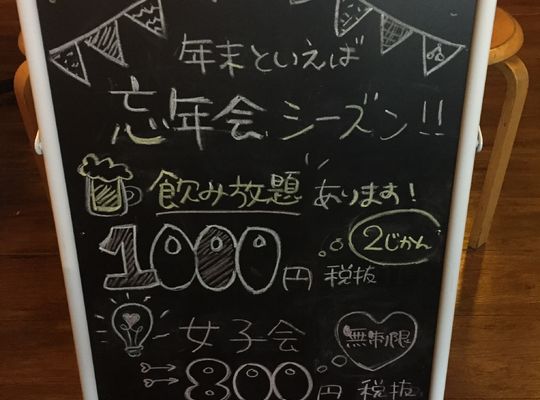 年末といえば
忘年会シーズン!!
飲み放題あります!
2じかん
1000円 税抜
女子会
無制限
800円 税抜